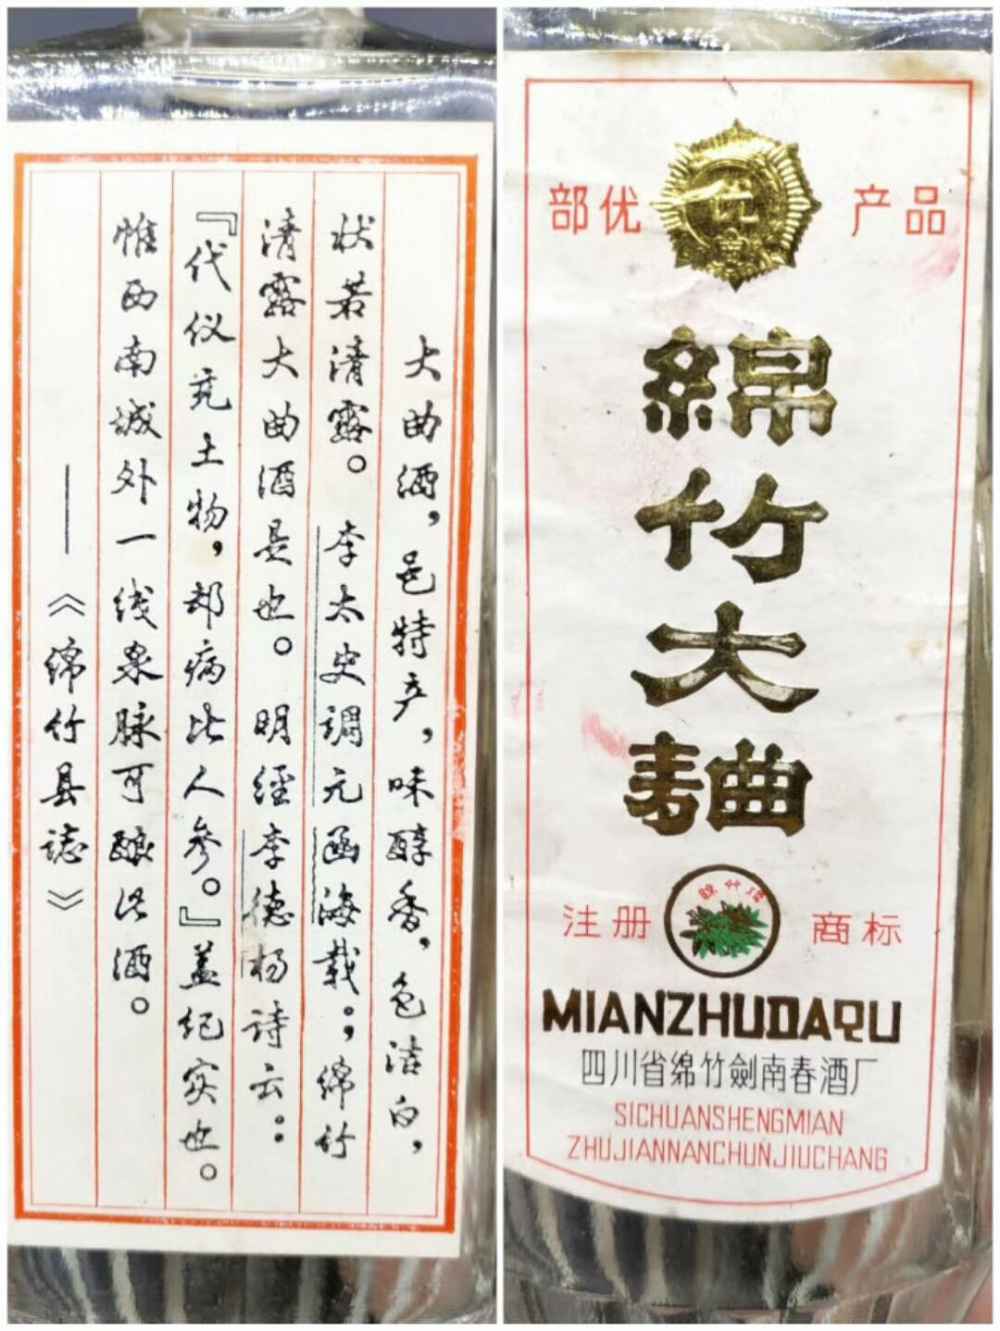 大曲酒，邑特产，味醇香，色洁白，
状若清露。李太史调元函海载。，绵竹
清露大曲酒是也。明经李德杨诗云：
『代仪充土物，却病比人参。』盖纪实也。
惟西南城外一线泉脉可酿此酒。
——《绵竹县志》
部优 产品
優
綿竹大麯
注册 商标
綿竹牌
MIANZHUDAQU
四川省绵竹劍南春酒厂
SICHUANSHENGMIAN
ZHUJIANNANCHUNJIUCHANG